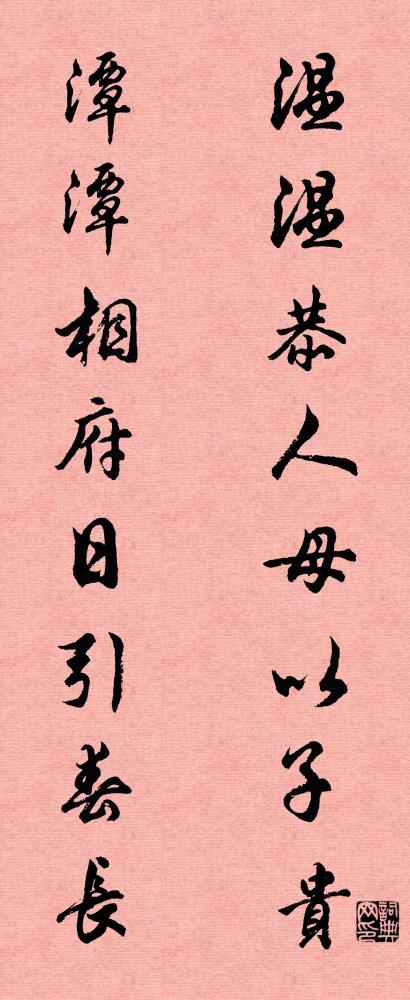 温温恭人母以子貴
潭潭相府日引春長
詞典网印